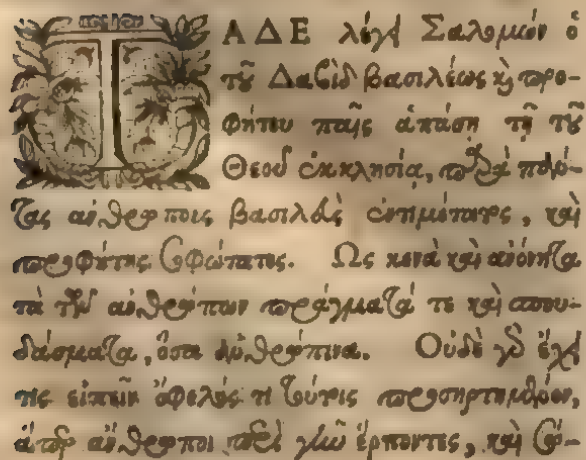 ΤΑΔΕ λέγει Σαλομὼν ὁ
τοῦ Δαβὶδ βασιλέως καὶ προ-
φήτου παῖς ἁπάσῃ τῇ τοῦ
Θεοῦ ἐκκλησίᾳ, παρὰ πάν-
τας ἀνθρώποις βασιλεὺς ἐντιμότατος, καὶ
προφήτης σοφώτατος. Ὡς κενὰ καὶ ἀνόνητα
τὰ τῶν ἀνθρώπων πράγματά τε καὶ σπου-
δάσματα, ὅσα ἀνθρώπινα. Οὐδὲ γὰρ ἔχει
τις εἰπεῖν ὄφελός τι τούτοις προσηρτημένον,
ἅπερ ἄνθρωποι περὶ γῆν ἕρποντες, καὶ